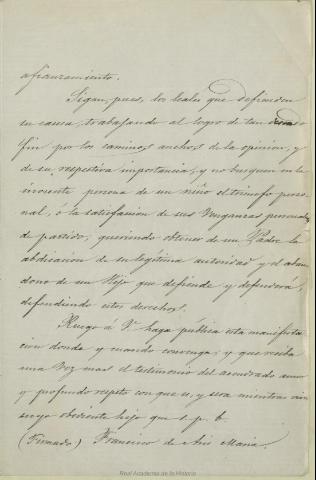 afianzamiento.
Sigan, pues, los leales que defienden
su causa, trabajando al logro de tan
fin por los caminos anchos de la opinion, y
de su respectiva importancia, y no busquen en la
inocente persona de un niño el triunfo perso-
nal, ó la satisfasion de sus venganzas personales
de partido, queriendo obtener de un Padre la
abdicacion de su legítima autoridad y el aban-
dono de un Hijo que defiende y defenderá,
defendiendo estos derechos.
Ruego á V. haga pública esta manifesta-
cion donde y cuando convenga; y que reciba
una vez mas el testimonio del acendrado amor
y profundo respeto con que es, y sera mientras viva
su yo obediente hijo que s. p. b.
(Firmado) Francisco de Asis Maria.
Real Academia de la Historia